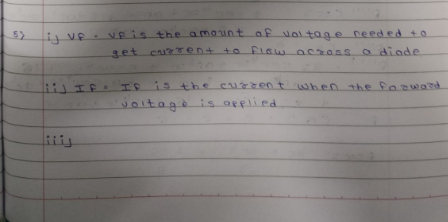 5) i) VF - VF is the amount of voltage needed to
get current to flow across a diode
ii) IF - IF is the current when the forward
voltage is applied.
iii)